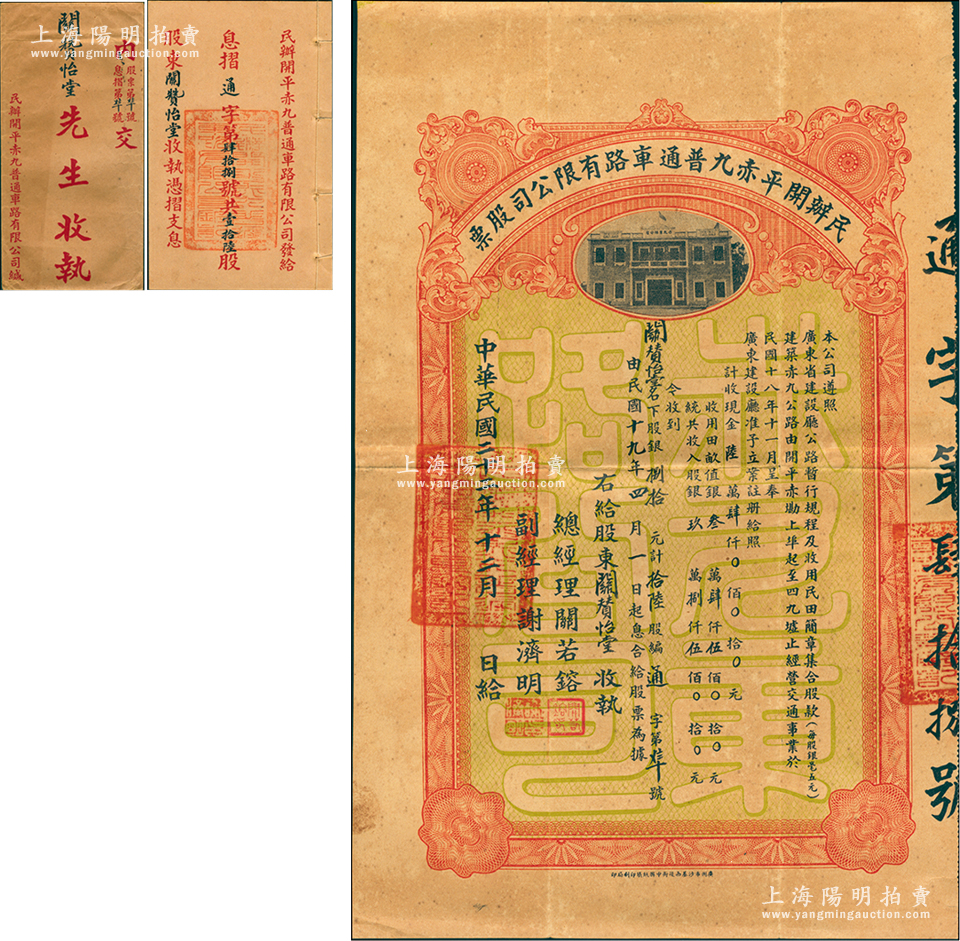 關贊怡堂
內
股票第卅八號
息摺第卅八號
交
先生收執
民辦開平赤九普通車路有限公司緘
民辦開平赤九普通車路有限公司發給
息摺 通 字第肆拾捌號共壹拾陸股
股東關贊怡堂收執憑摺支息
上海陽明拍賣
www.yangmingauction.com
上海陽明拍賣
www.yangmingauction.com
民辦開平赤九普通車路有限公司股票
本公司遵照
廣東省建設廳公路暫行規程及收用民田簡章集合股款(每股銀毫五元)
建築赤九公路由開平赤坎上埠起至四九墟止經營交通事業於
民國十八年十一月呈奉
廣東建設廳准予立業註册給照
計收現金 陸 萬肆仟〇佰〇拾〇元
收用田畝值銀 叁 萬肆仟伍佰〇拾〇元
統共收入股銀 玖 萬捌仟伍佰〇拾〇元
今收到
關贊怡堂名下股銀 捌拾 元計 拾陸 股編 通 字第 號
由民國十九年四月一日起息合給股票為據
右給股東關贊怡堂收執
總經理關若鎔
副經理謝濟明
中華民國二十二年十二月 日給
通字第肆拾捌號
上海陽明拍賣
www.yangmingauction.com
上海陽明拍賣
www.yangmingauction.com